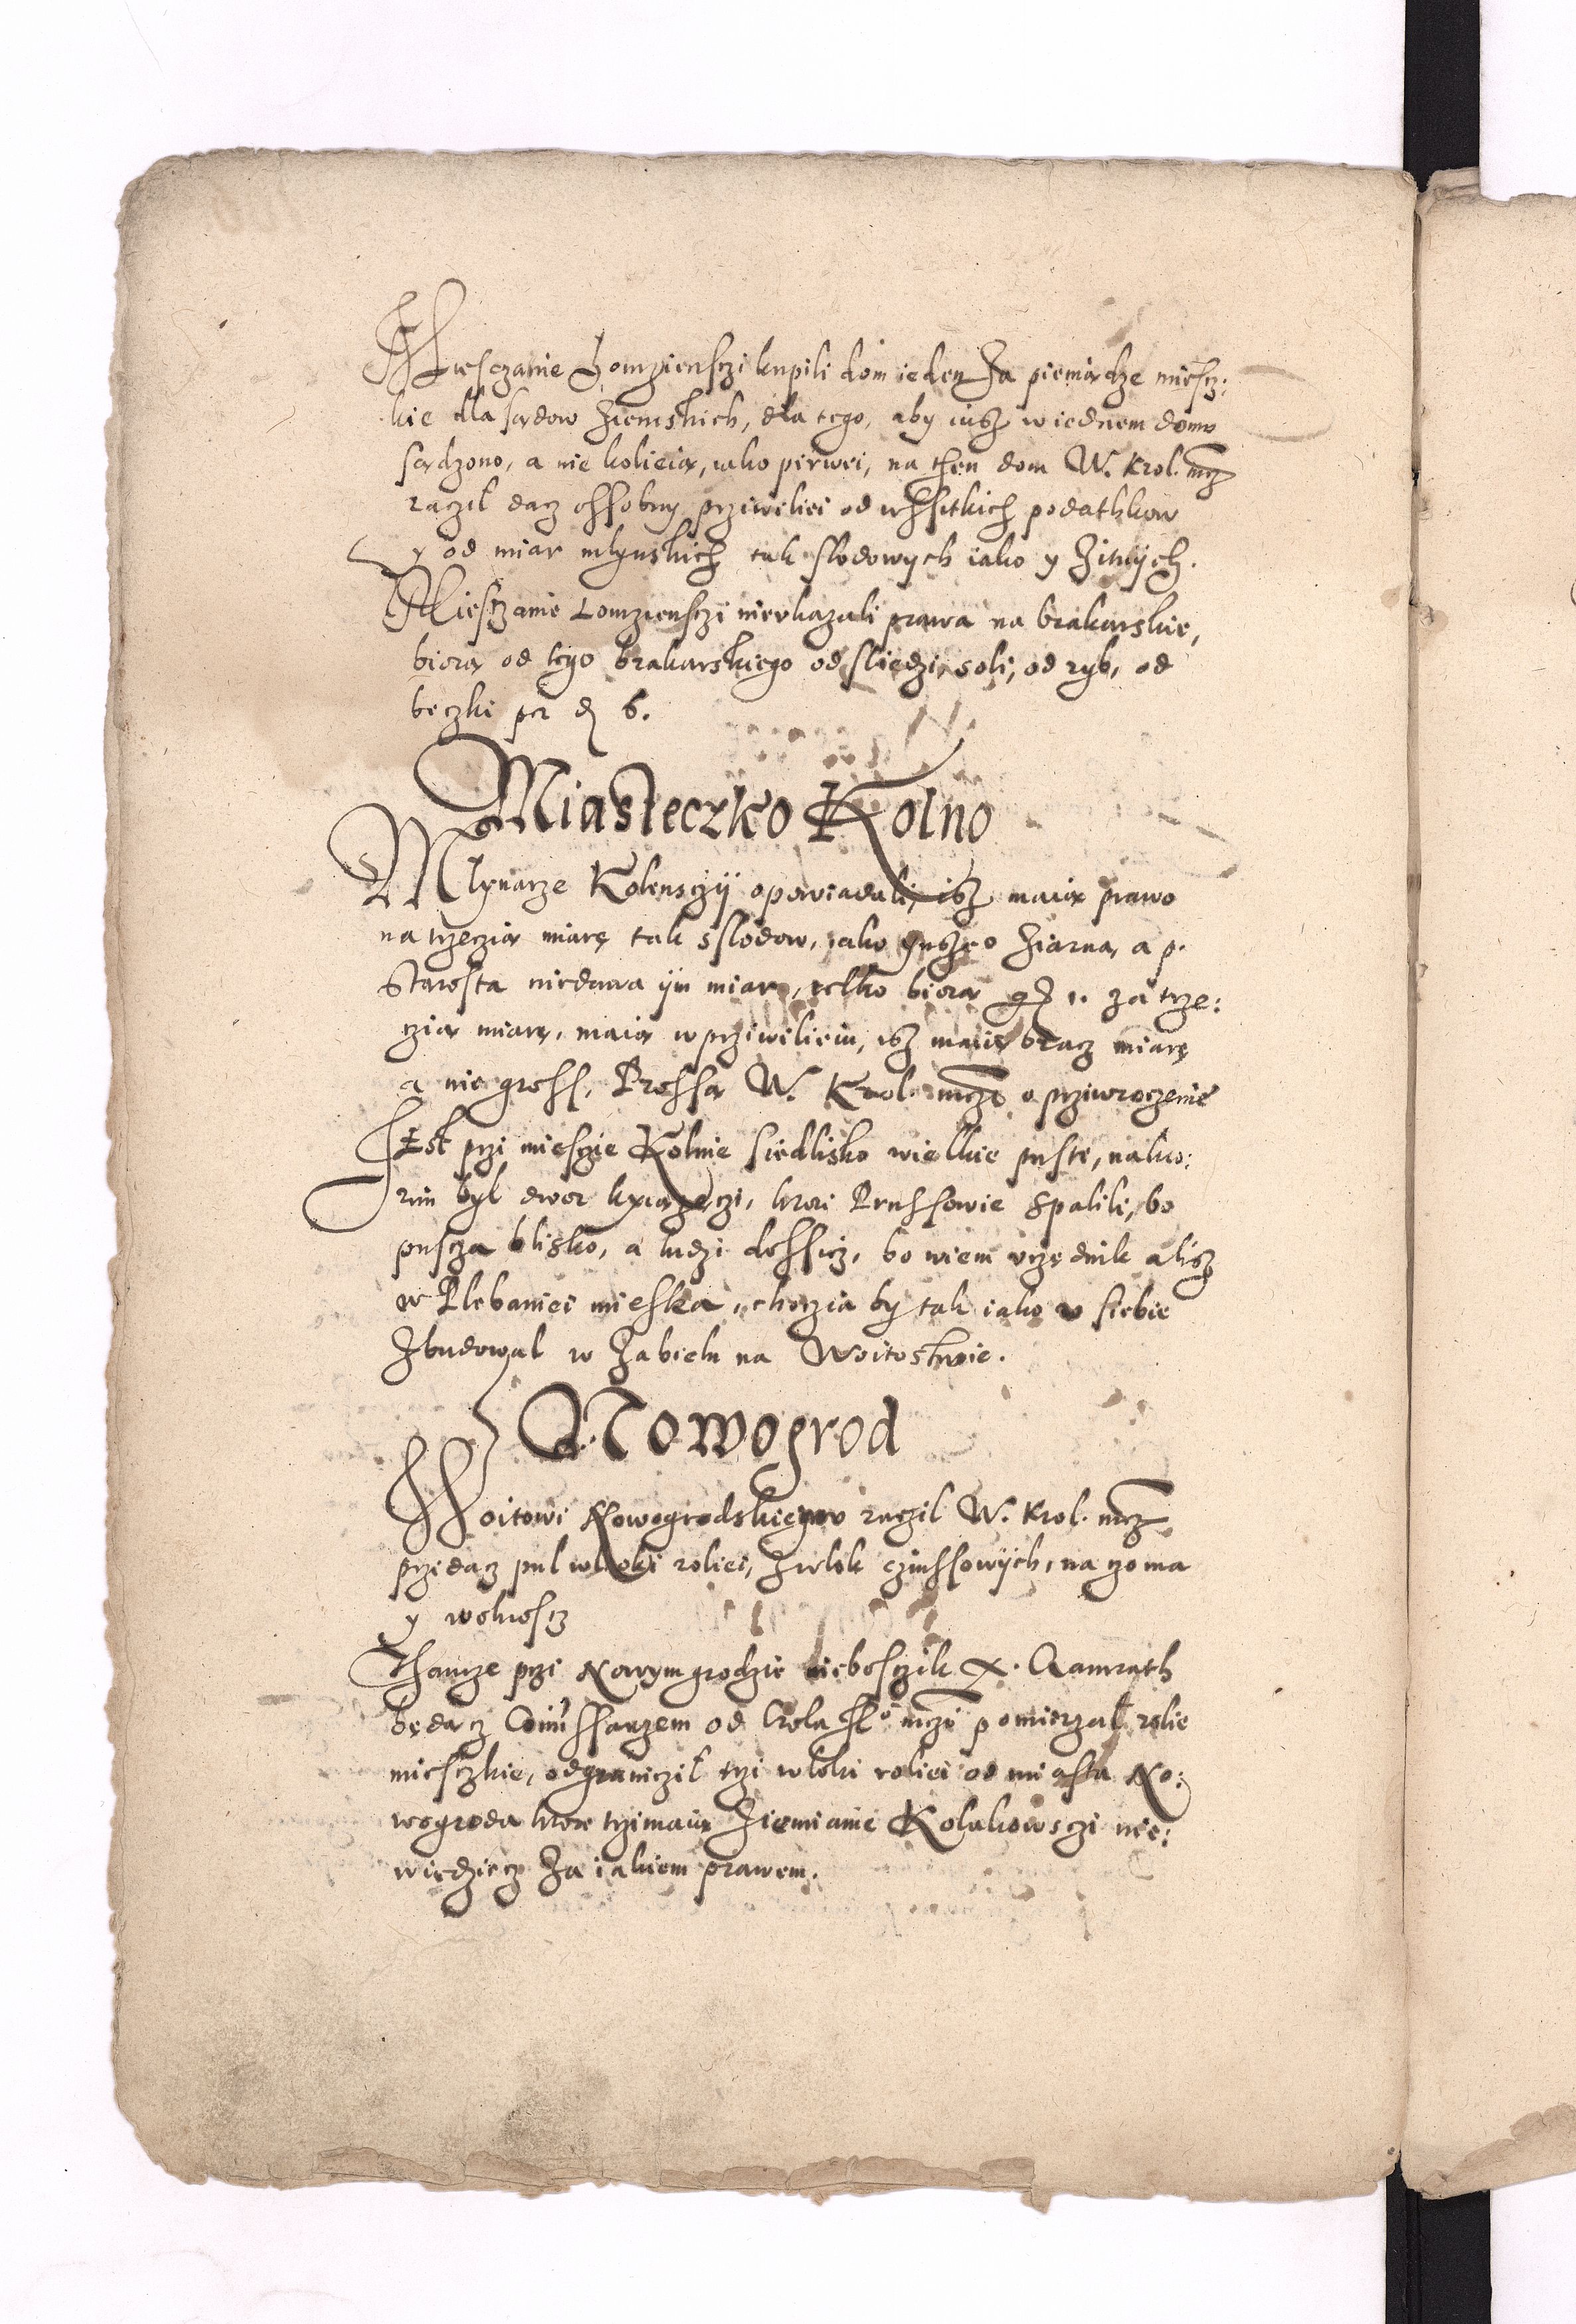 Miesczanie Lomzienſczi kupili dom ieden Za pieniądze mieſcz:
kie dla ſądow Ziemskich, dla tego, aby iusz w iednem domu
ſądzono, a nie kolieią, iako pirwei, na then dom W. Krol. mcz
raczil dacz oſſobny prziwiliei od wſſitkich podathkow
y od miar mlynskich tak ſlodowych iako y Zitnych.
Mieſczanie Lomzienſczi nieukazali prawa na brakarskie,
biorą od tego brakarskiego od ſliedzi, soli, od ryb, od
beczki po d 6.
Miasteczko Kolno
Mlynarze Kolensczij opowiadali, isz maią prawo
na trzeczią miarę tak s ſlodow, iako Inszego Ziarna, a p.
Starosta niedawa ijm miar, telko biorą gr 1. za trze:
czią miarę, maią w prziwilieiu, isz maią bracz miarę
a nie groſſ, Proſſą W. Krol. mczi o prziwroczenie
Jest przi mieſczie Kolnie ſiedlisko wielkie puſte, na kto:
rim byl dwor kxiązęczi, ktori Pruſſowie spalili, bo
puſcza blisko, a ludzi doſſicz, bo niem urzędnik alisz
w Plebaniei mieſka, choczia by tak iako v ſiebie
Zbudowal w Zabielu na Woitostwie.
Nowogrod
Woitowi Nowogrodskiemu raczil W. Krol. mcz
przidacz pul wloki roliei, Z wlok czinſſowijch, na czo ma
y wolnoſcz
Thamze przi Nowym grodzie nieboſczik X. Gamrath
będącz Comiſſarzem od Krola Jo mczi pomierzal rolie
mieſczkie, odgraniczil trzi wloki roliei od miaſta No:
wogroda ktore trzimaią Ziemianie Kolakowsczi nie:
wiedziecz Za iakiem prawem.